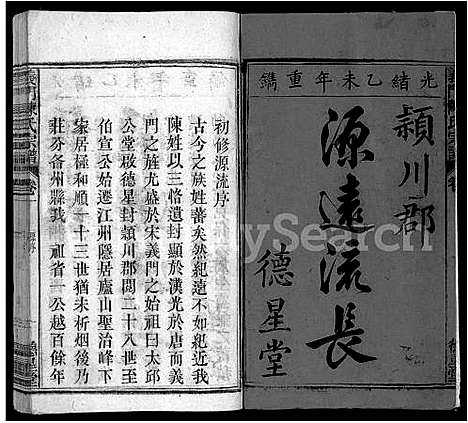 光緒乙未年重鐫
頴川郡
源遠流長
德星堂
義門陳氏宗譜
初修源流序
古今之族姓蕃矣然紀遠不如紀近我
陳姓以三恪遺封顯於漢光於唐而義
門之旌尤盛於宋義門之始祖曰太邱
公堂啟德星封頴川郡閱二十八世至
伯宣公始遷江州隱居廬山聖治峰下
家居極和順一十三世猶未析烟後乃
莊分各州縣我 祖省一公越百餘年